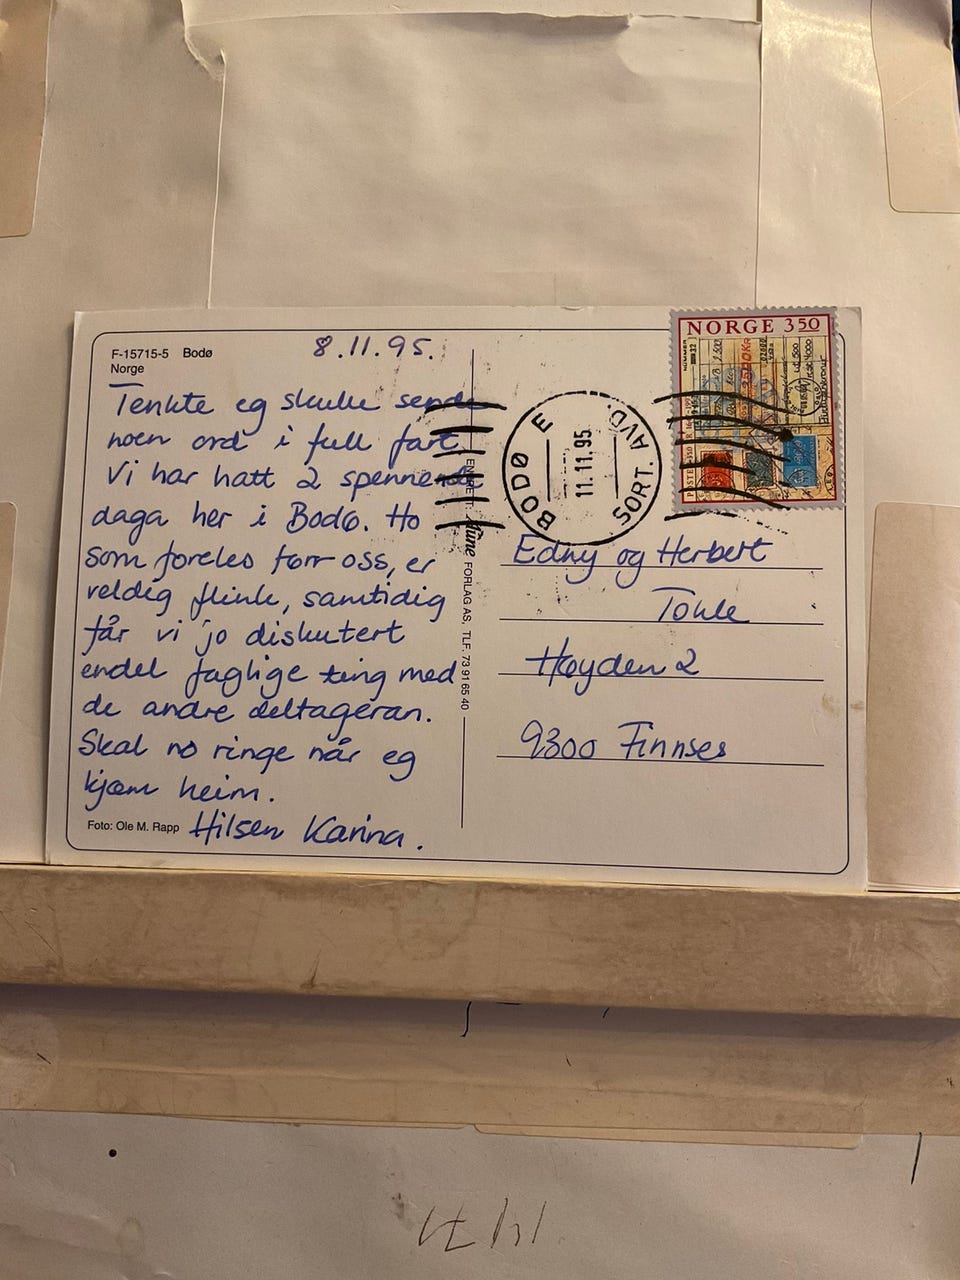 F-15715-5 Bodø
Norge
8.11.95.
Tenkte eg skulle sende
noen ord i full fart
Vi har hatt 2 spennende
daga her i Bodø. Ho
som foreles for oss, er
veldig flink, samtidig
får vi jo diskutert
endel faglige ting med
de andre deltageran.
Skal no ringe når eg
kjæm heim.
Hilsen Karina.
Foto: Ole M. Rapp
ENERETT: Aune FORLAG AS, TLF. 73 91 65 40
BODØ E
11.11.95.
SORT. AVD.
NORGE 3 50
Edny og Herbert
Tokle
Høyden 2
9300 Finnses